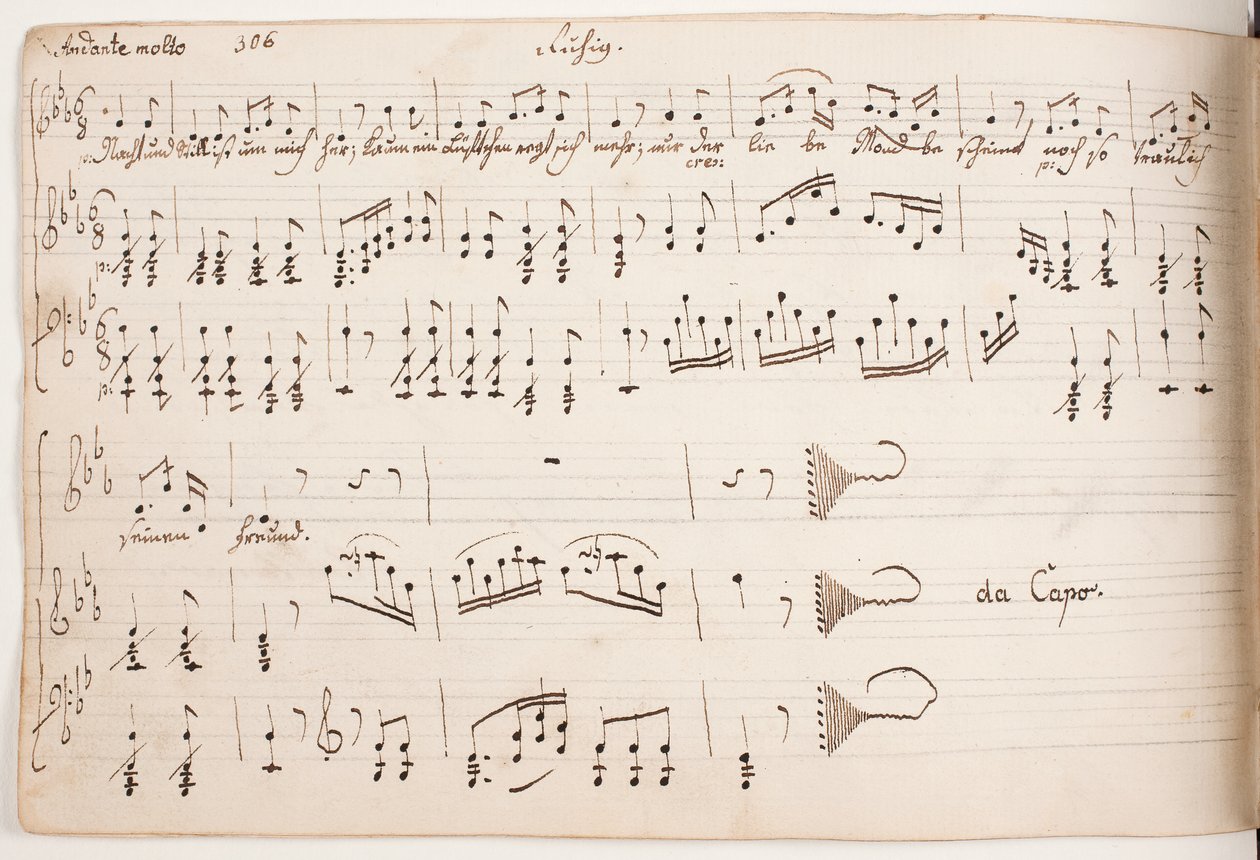 Andante molto 306 Ruhig.
p: Nacht und Still ist um mich her; kaum ein Lüftchen regt sich mehr; nur der lie be Mond be scheint noch so traulich
cres: p:
p:
p:
seinen Freund.
da Capo.